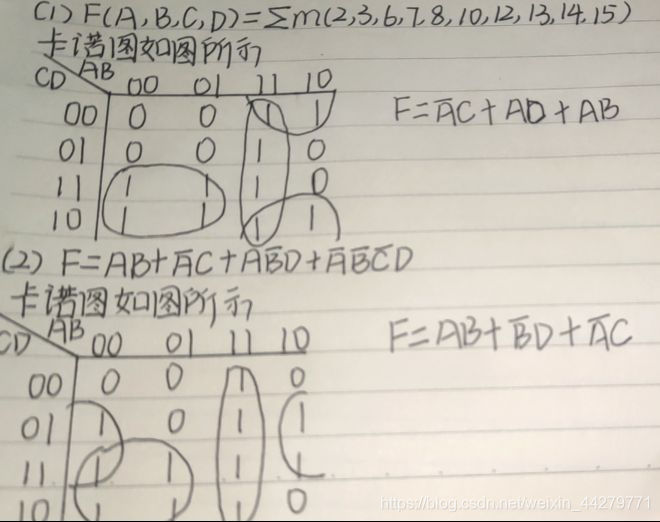 (1) F(A,B,C,D)=Σm(2,3,6,7,8,10,12,13,14,15)
卡诺图如图所示
CD AB 00 01 11 10
00 0 0 1 1
F=A̅C+AD̅+AB
01 0 0 1 0
11 1 1 1 0
10 1 1 1 1
(2) F=AB+A̅C+AB̅D+A̅B̅C̅D
卡诺图如图所示
CD AB 00 01 11 10
F=AB+B̅D+A̅C
00 0 0 1 0
01 1 0 1 1
11 1 1 1 1
10 1 1 1 0
https://blog.csdn.net/weixin_44279771